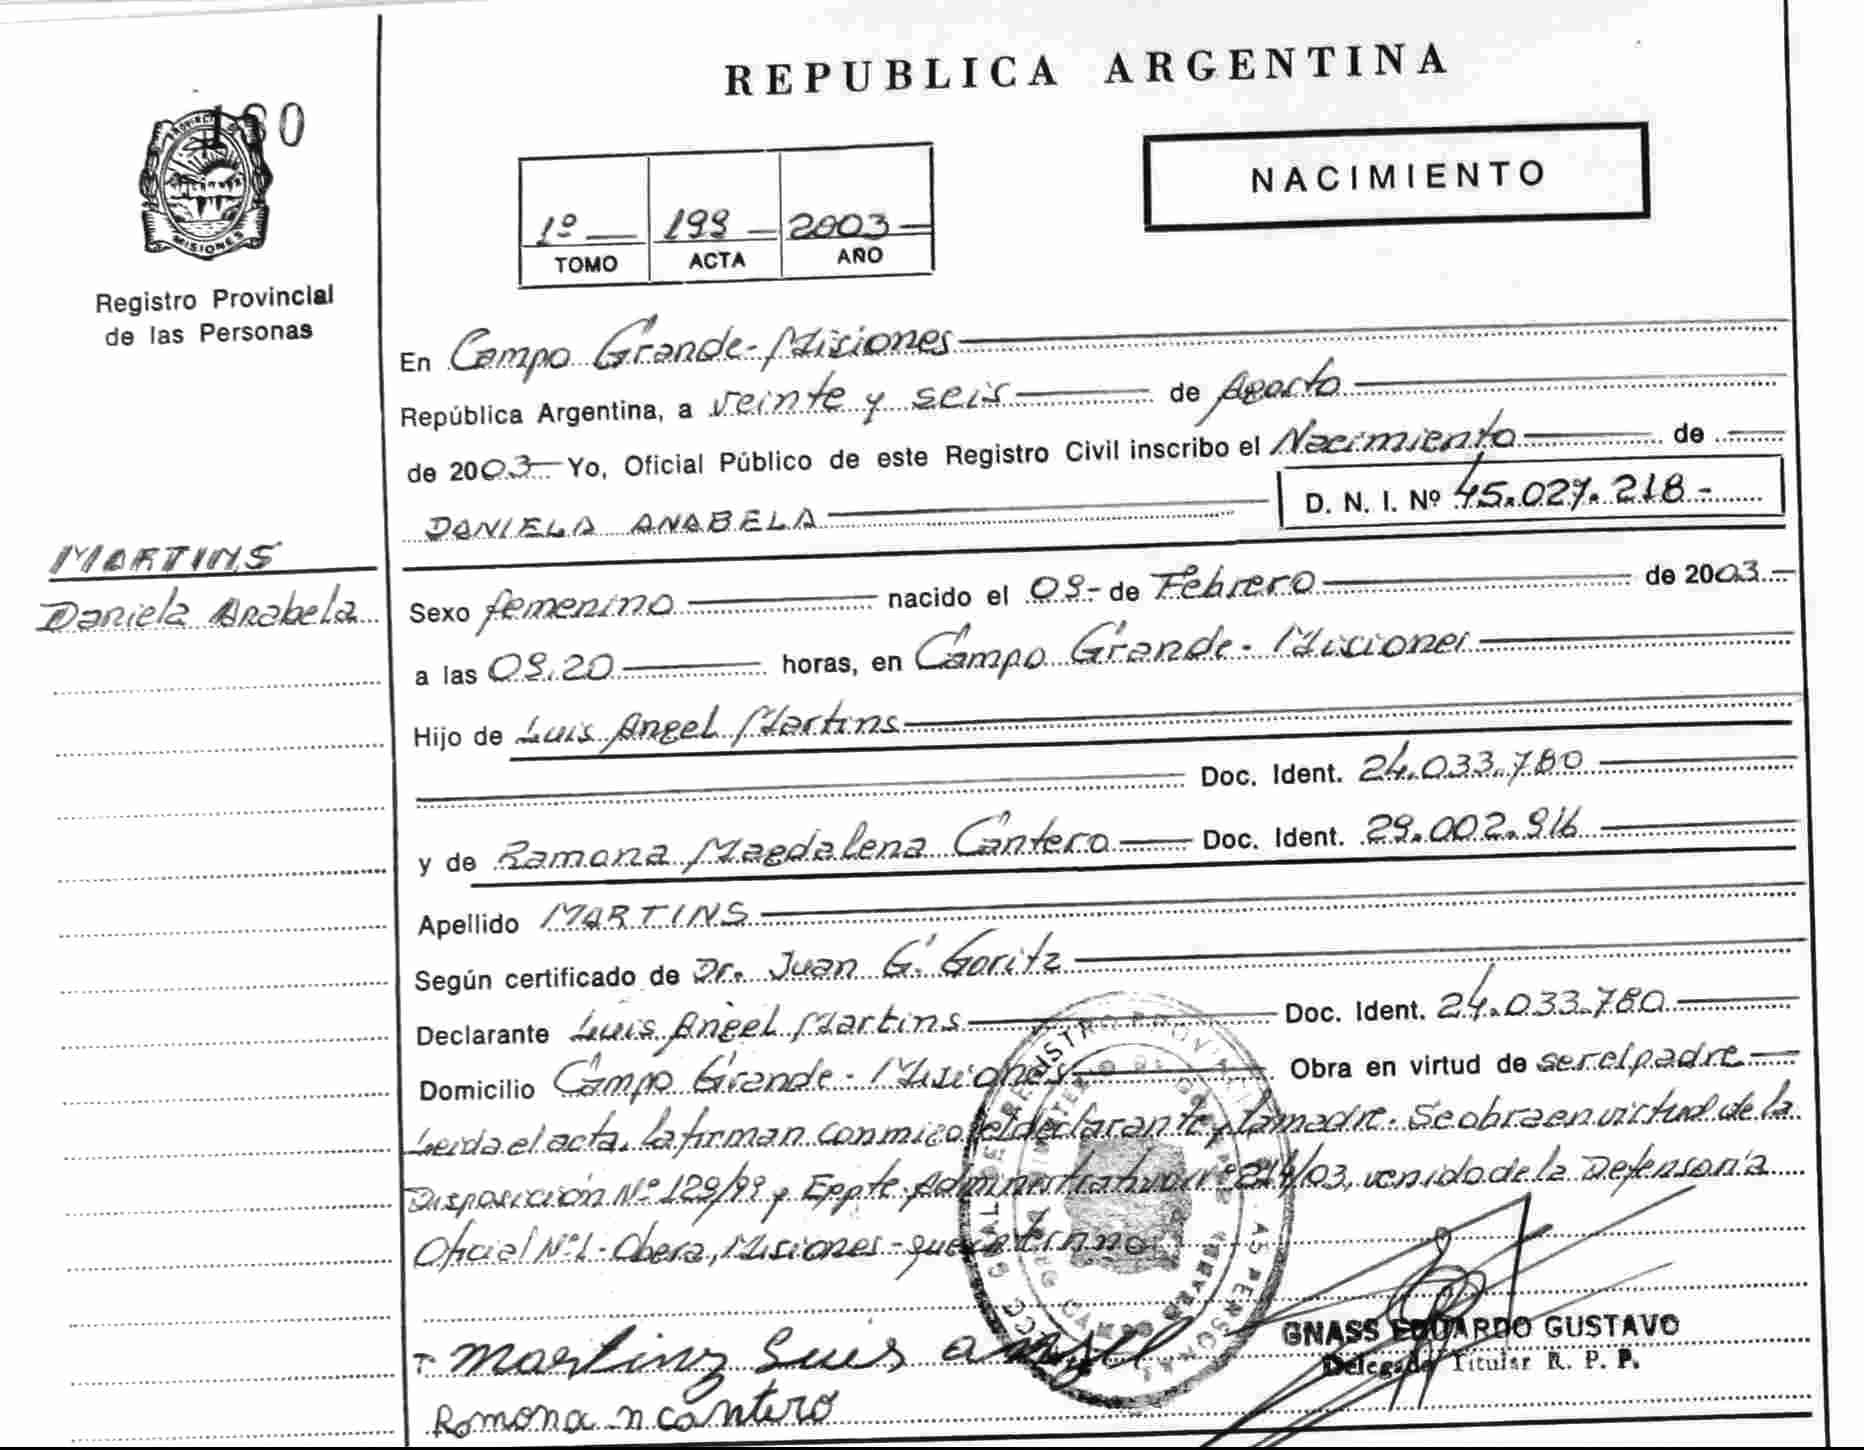 REPUBLICA ARGENTINA
NACIMIENTO
PROVINCIA
MISIONES
Registro Provincial
de las Personas
1º 199 2003
TOMO ACTA AÑO
En Campo Grande - Misiones
República Argentina, a veinte y seis de Agosto
de 2003 Yo, Oficial Público de este Registro Civil inscribo el Nacimiento de
DANIELA ANABELA D. N. I. Nº 45.027.218-
MARTINS
Daniela Anabela
Sexo femenino nacido el 09- de Febrero de 2003
a las 09.20 horas, en Campo Grande - Misiones
Hijo de Luis Angel Martins
Doc. Ident. 24.033.780
y de Ramona Magdalena Cantero Doc. Ident. 29.002.916
Apellido MARTINS
Según certificado de Dr. Juan G. Goritz
Declarante Luis Angel Martins Doc. Ident. 24.033.780
Domicilio Campo Grande - Misiones Obra en virtud de ser el padre
Leida el acta, la firman conmigo el declarante y la madre. Se obra en virtud de la
Disposición Nº 129/99 y Eppte. Administrativo nº 214/03, venido de la Defensoria
Oficial Nº1 - Obera, Misiones - que interno
GNASS EDUARDO GUSTAVO
Delegado Titular R. P. P.
Martins Luis Angel
Romona n cantero